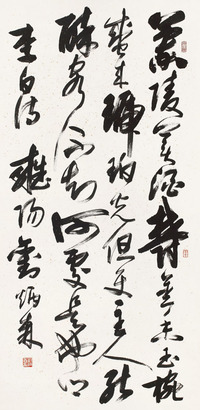 蘭陵美酒鬱金香玉椀
盛來琥珀光但使主人能
醉客不知何處是他鄉
李白詩